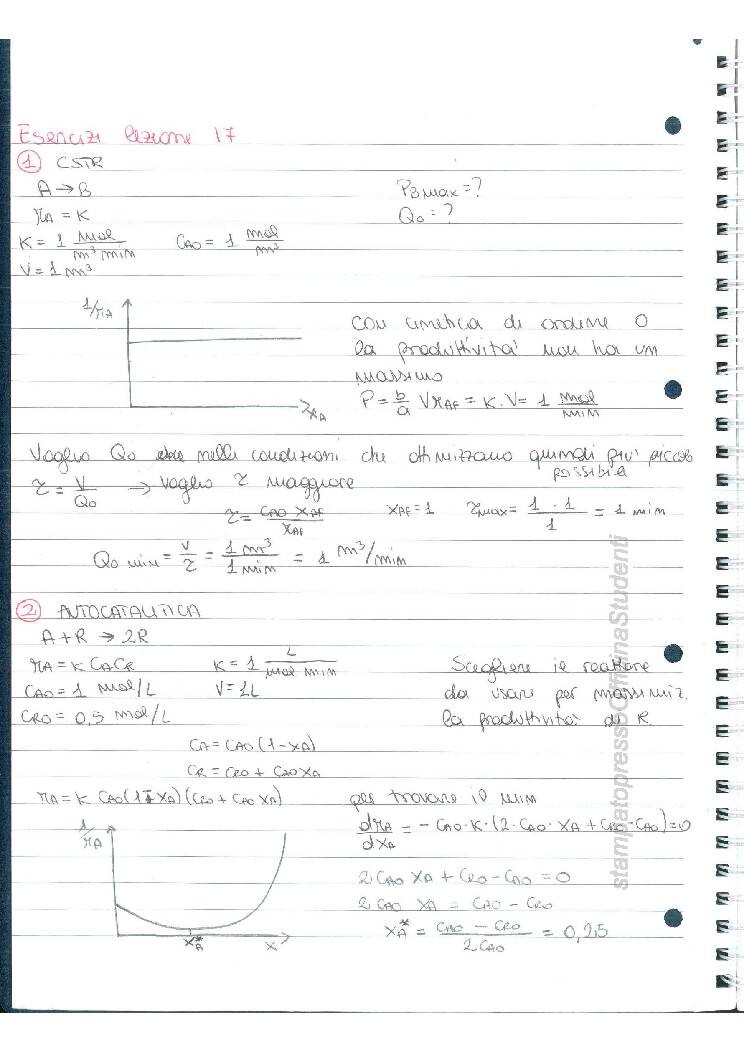 Esercizi lezione 17
① CSTR
A → B    PB max = ?
rA = K    Q0 = ?
K = 1 mol/(m³ min)    CA0 = 1 mol/m³
V = 1 m³
1/rA
con cinetica di ordine 0
la produttività non ha un
massimo
P = b/a V rAF = K · V = 1 mol/min
XA
Voglio Q0 nelle condizioni che ottimizzano quindi più piccolo
possibile
τ = V/Q0 → voglio τ maggiore
τ = CA0 XAF / rAF    XAF = 1    τmax = 1 · 1 / 1 = 1 min
Q0 min = V/τ = 1 m³ / 1 min = 1 m³/min
② AUTOCATALITICA
A + R → 2R
rA = K CA CR    K = 1 L/(mol min)    Scegliere il reattore
CA0 = 1 mol/L    V = 1L    da usare per massimiz.
CR0 = 0,5 mol/L    la produttività di R.
CA = CA0 (1 - XA)
CR = CR0 + CA0 XA
rA = K CA0 (1 - XA) (CR0 + CA0 XA)    per trovare il min
1/rA
drA/dXA = - CA0 · K · (2 · CA0 · XA + CR0 - CA0) = 0
2 CA0 XA + CR0 - CA0 = 0
2 CA0 XA = CA0 - CR0
XA* = (CA0 - CR0) / 2 CA0 = 0,25
XA*    X
stampato presso OfficinaStudenti